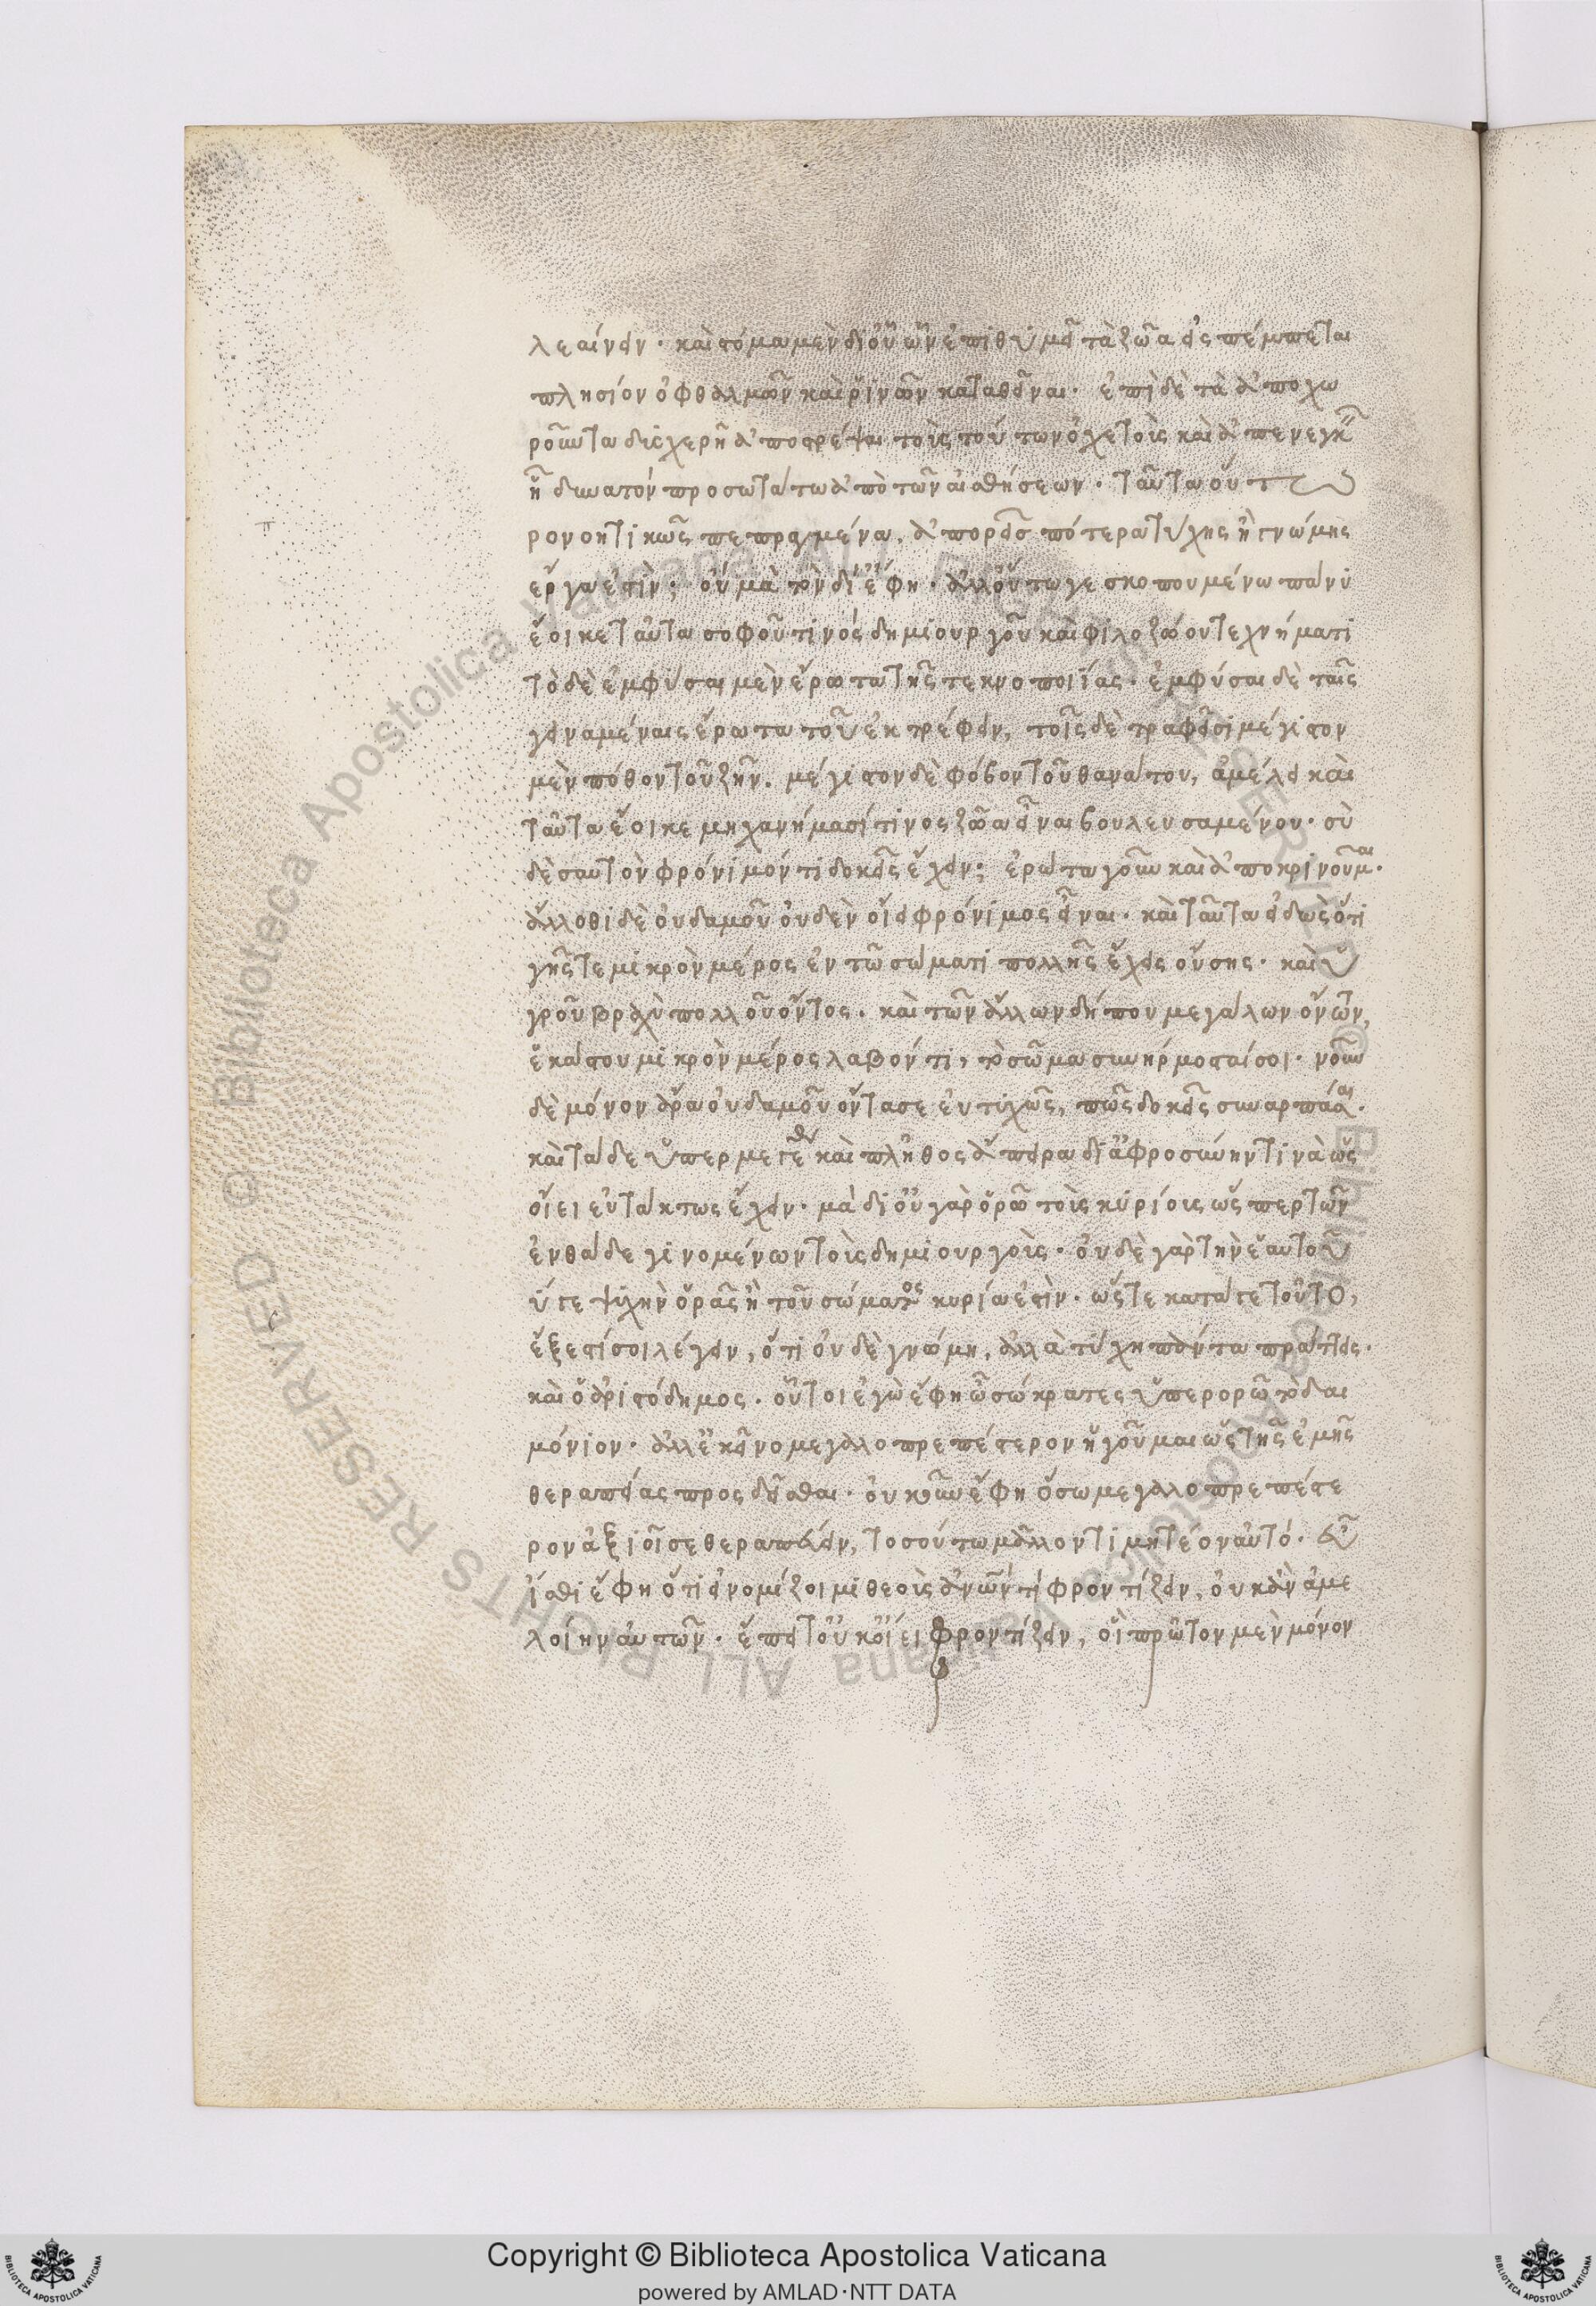 λεαίνειν· καὶ στόμα μὲν δι' οὗ ὧν ἐπιθυμεῖ τὰ ζῶα εἰσπέμπεται
πλησίον ὀφθαλμῶν καὶ ῥινῶν καταθεῖναι· ἐπὶ δὲ τὰ ἀποχω
ροῦντα δυσχερῆ ἀποστρέψαι τοὺς τούτων ὀχετοὺς καὶ ἀπενεγκεῖν
ᾗ δυνατὸν προσωτάτω ἀπὸ τῶν αἰσθήσεων· ταῦτα οὕτω π
ρονοητικῶς πεπραγμένα, ἀπορεῖς πότερα τύχης ἢ γνώμης
ἔργα ἐστὶν; οὐ μὰ τὸν δί' ἔφη· ἀλλ' οὕτω γε σκοπουμένω πάνυ
ἔοικε ταῦτα σοφοῦ τινὸς δημιουργοῦ καὶ φιλοζώου τεχνήματι
τὸ δὲ ἐμφῦσαι μὲν ἔρωτα τῆς τεκνοποιΐας· ἐμφῦσαι δὲ ταῖς
γειναμέναις ἔρωτα τοῦ ἐκτρέφειν, τοῖς δὲ τραφεῖσι μέγιστον
μὲν πόθον τοῦ ζῆν, μέγιστον δὲ φόβον τοῦ θανάτου, ἀμέλει καὶ
ταῦτα ἔοικε μηχανήμασί τινος ζῶα εἶναι βουλευσαμένου· σὺ
δὲ σαυτὸν φρόνιμόν τι δοκεῖς ἔχειν; ἐρώτα γοῦν καὶ ἀποκρινοῦμαι·
ἄλλοθι δὲ οὐδαμοῦ οὐδὲν οἴει φρόνιμος εἶναι· καὶ ταῦτα εἰδὼς ὅτι
γῆς τε μικρὸν μέρος ἐν τῶ σώματι πολλῆς ἔχεις οὔσης· καὶ ὑ
γροῦ βραχὺ πολλοῦ ὄντος· καὶ τῶν ἄλλων δήπου μεγάλων ὄντων,
ἑκάστου μικρὸν μέρος λαβόντι, τὸ σῶμα συνήρμοσταί σοι· νοῦν
δὲ μόνον ἄρα οὐδαμοῦ ὄντα σε εὐτυχῶς, πῶς δοκεῖς συναρπάσαι·
καὶ τάδε ὑπερμεγέθη καὶ πλῆθος ἄπειρα δι' ἀφροσύνην τινὰ ὡς
οἴει εὐτάκτως ἔχειν· μὰ δι' οὐ γὰρ ὁρῶ τοὺς κυρίους ὥσπερ τῶν
ἐνθάδε γινομένων τοὺς δημιουργούς· οὐδὲ γὰρ τὴν ἑαυτοῦ
σύ γε ψυχὴν ὁρᾶς ἣ τοῦ σώματος κυρία ἐστὶν· ὥστε κατά γε τοῦτο,
ἔξεστί σοι λέγειν, ὅτι οὐδὲ γνώμη, ἀλλὰ τύχη πάντα πράττεις·
καὶ ὁ ἀριστόδημος· οὔτοι ἐγὼ ἔφη ὦ σώκρατες ὑπερορῶ τὸ δαι
μόνιον· ἀλλ' ἐκεῖνο μεγαλοπρεπέστερον ἡγοῦμαι ὡς τῆς ἐμῆς
θεραπείας προσδεῖσθαι· οὐκοῦν ἔφη ὅσω μεγαλοπρεπέστε
ρον ἀξιοῖ σε θεραπεύειν, τοσούτω μᾶλλον τιμητέον αὐτό· εὖ
ἴσθι ἔφη ὅτι εἰ νομίζοιμι θεοὺς ἀνων τί φροντίζειν, οὐκ ἂν ἀμε
λοίην αὐτῶν· ἔπειτ' οὐκ οἴει φροντίζειν, οἳ πρῶτον μὲν μόνον